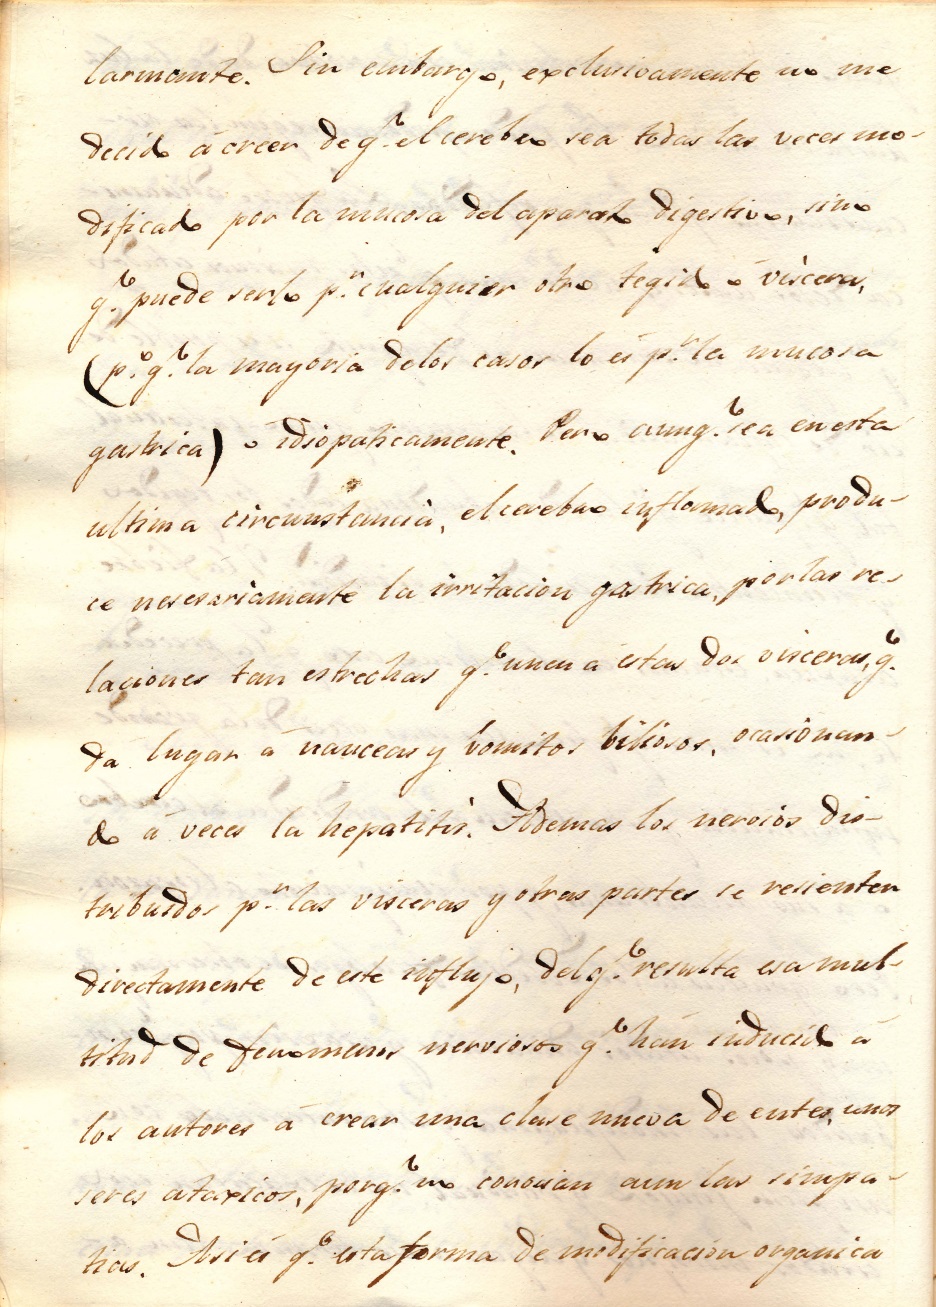 larmente. Sin embargo, exclusivamente no me
decido á creer de q.e el cerebro sea todas las veces mo-
dificado por la mucosa del aparato digestivo, sino
q.e puede serlo p.r cualquier otro tegido ó visceras,
(p.o q.e la mayoria delos casos lo és p.r la mucosa
gastrica) ó idiopaticamente. Pero aunq.e sea en esta
ultima circunstancia, el cerebro inflamado, produ-
ce nesesariamente la irritacion gastrica, por las re-
laciones tan estrechas q.e unen á estas dos visceras, q.e
da lugar á nauceas y bomitos biliosos, ocasionan-
do á veces la hepatitis. Ademas los nervios dis-
tribuidos p.r las visceras y otras partes se resienten
directamente de este influjo, del q.e resulta esa mul-
titud de fenomenos nerviosos q.e hán inducido á
los autores á crear una clase nueva de entes, unos
seres ataxicos, porq.e no conocian aun las simpa-
tias. Asi és q.e esta forma de modificacion organica